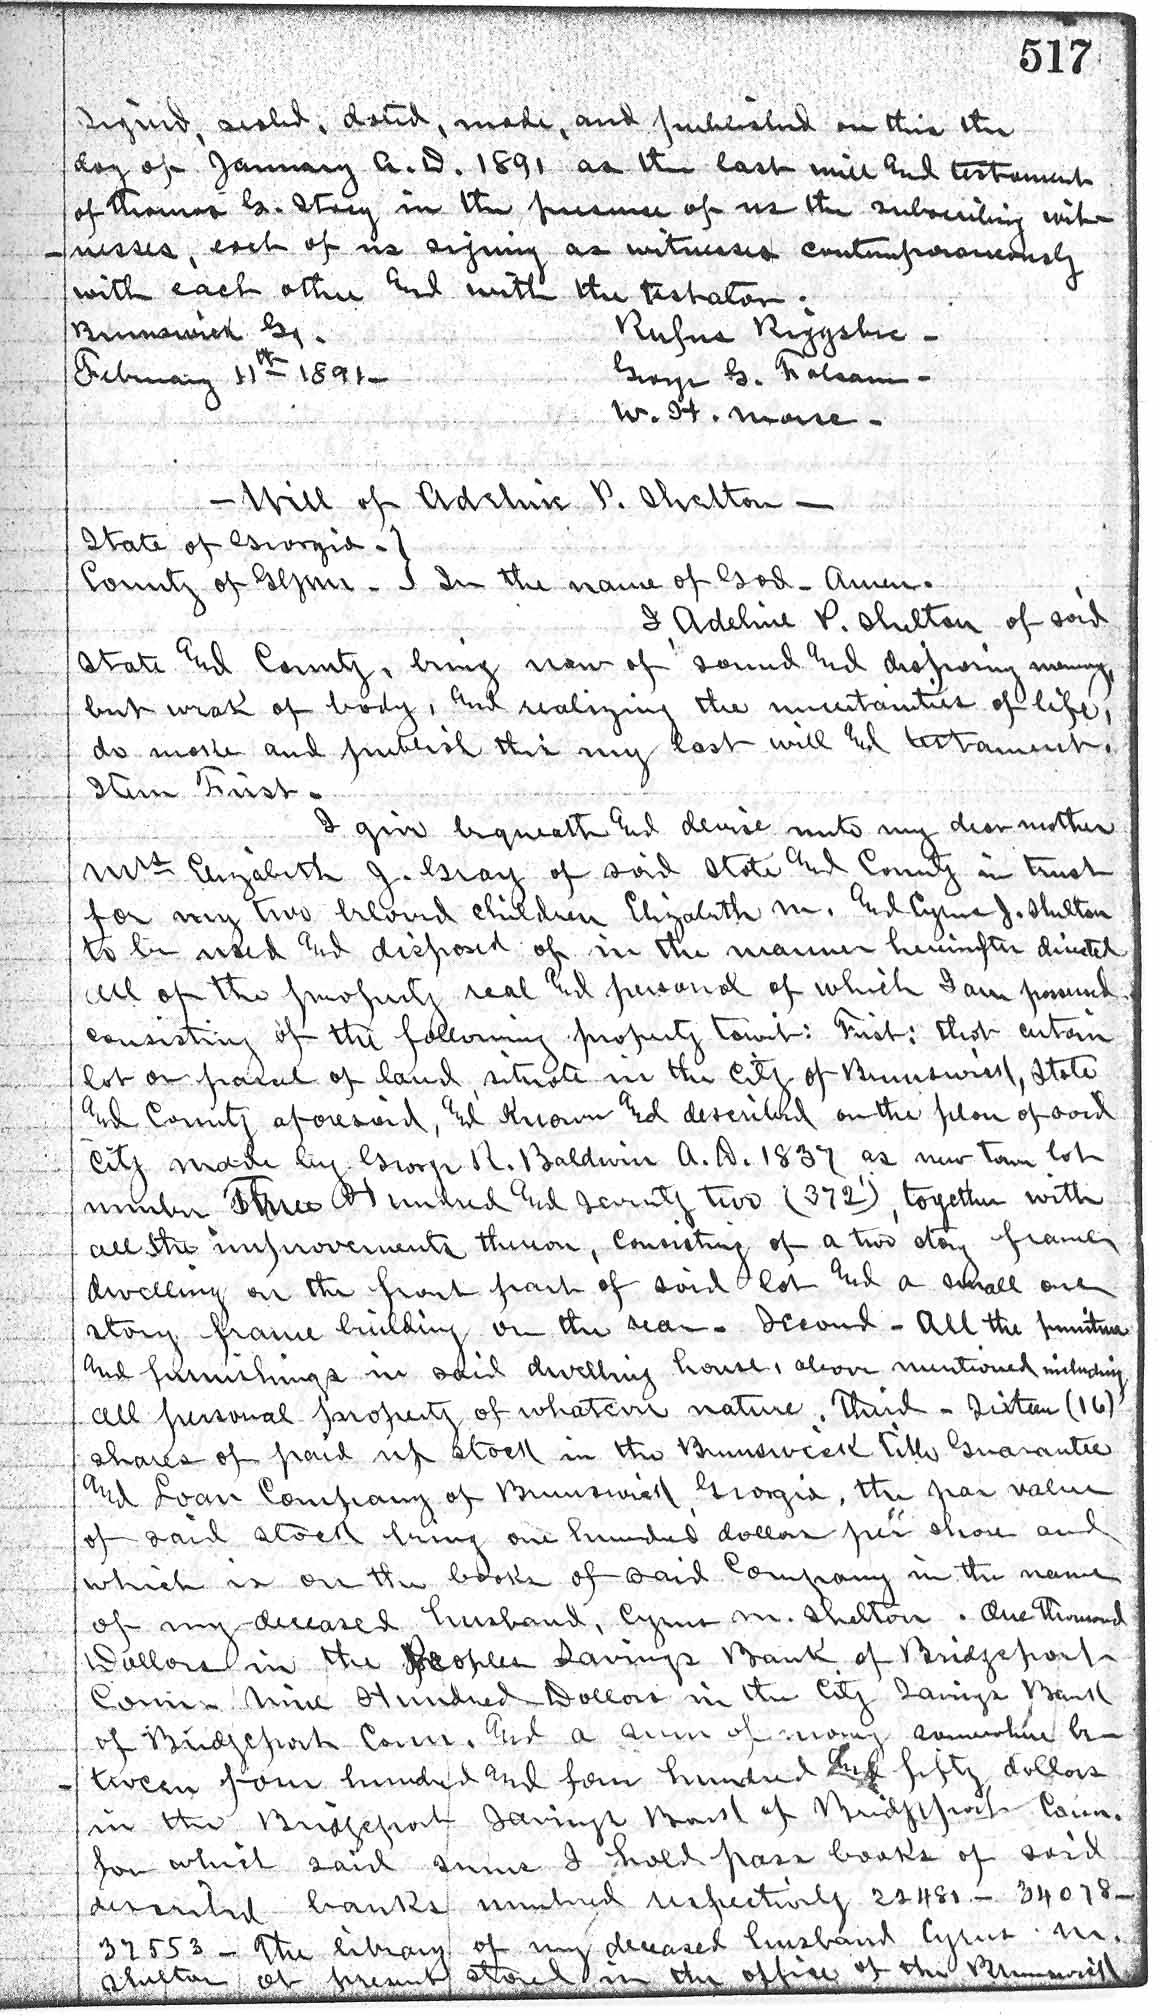 517
Signed, sealed, dated, made, and published on this the
day of January A.D. 1891 as the last will and testament
of Thomas G. Stacy in the presence of us the subscribing wit-
-nesses, each of us signing as witnesses contemporaneously
with each other and with the testator.
Brunswick Ga. Rufus Riggsbee -
February 11th 1891 - George G. Folsom -
W. H. Morse -
- Will of Adeline P. Shelton -
State of Georgia - }
County of Glynn - } In the name of God - Amen.
I, Adeline P. Shelton of said
State and County, being now of sound and disposing memory,
but weak of body, and realizing the uncertainties of life,
do make and publish this my last will and testament.
Item First.
I give bequeath and devise unto my dear mother
Mrs Elizabeth J. Gray of said State and County in trust
for my two beloved children Elizabeth M. and Cyrus J. Shelton
to be used and disposed of in the manner hereinafter directed
all of the property real and personal of which I am possessed.
consisting of the following property towit: First: that certain
lot or parcel of land, situate in the City of Brunswick, State
and County aforesaid, and known and described on the plan of said
City made by George R. Baldwin A.D. 1837 as new town lot
number Three Hundred and Seventy two (372), together with
all the improvements thereon, consisting of a two story frame
dwelling on the front part of said lot and a small one
story frame building on the rear - Second - All the furniture
and furnishings in said dwelling house, above mentioned including
all personal property of whatever nature. Third - Sixteen (16)
shares of paid up stock in the Brunswick Title Guarantee
and Loan Company of Brunswick, Georgia, the par value
of said stock being one hundred dollars per share and
which is on the books of said Company in the name
of my deceased husband, Cyrus M. Shelton. One Thousand
Dollars in the Peoples Savings Bank of Bridgeport
Conn - Nine Hundred Dollars in the City Savings Bank
of Bridgeport Conn. and a sum of money somewhere be-
-tween four hundred and four hundred and fifty dollars
in the Bridgeport Savings Bank of Bridgeport Conn.
for which said sums I hold pass books of said
described banks numbered respectively 22481 - 34078 -
37553 - The library of my deceased husband Cyrus M.
Shelton at present stored in the office of the Brunswick